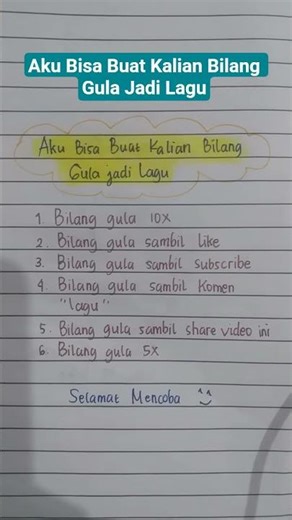 Aku Bisa Buat Kalian Bilang
Gula Jadi Lagu
Aku Bisa Buat Kalian Bilang
Gula jadi Lagu
1. Bilang gula 10x
2. Bilang gula sambil Like
3. Bilang gula sambil subscribe
4. Bilang gula sambil Komen
"lagu"
5. Bilang gula sambil share video ini
6. Bilang gula 5x
Selamat Mencoba ^^